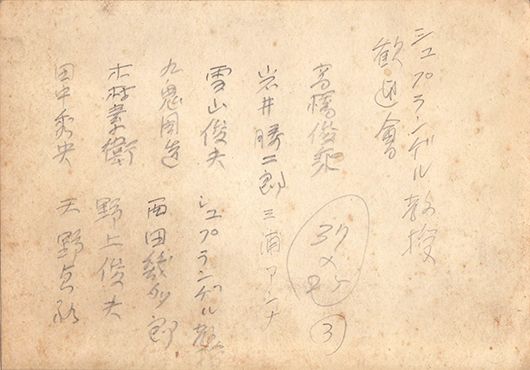 シュプランゲル教授
歓迎會
高橋俊乗
岩井勝二郎 三浦アンナ
雪山俊夫 シュプランゲル教
九鬼周造 西田幾多郎
木村素衛 野上俊夫
田中秀央 天野貞祐
37
×
25
③